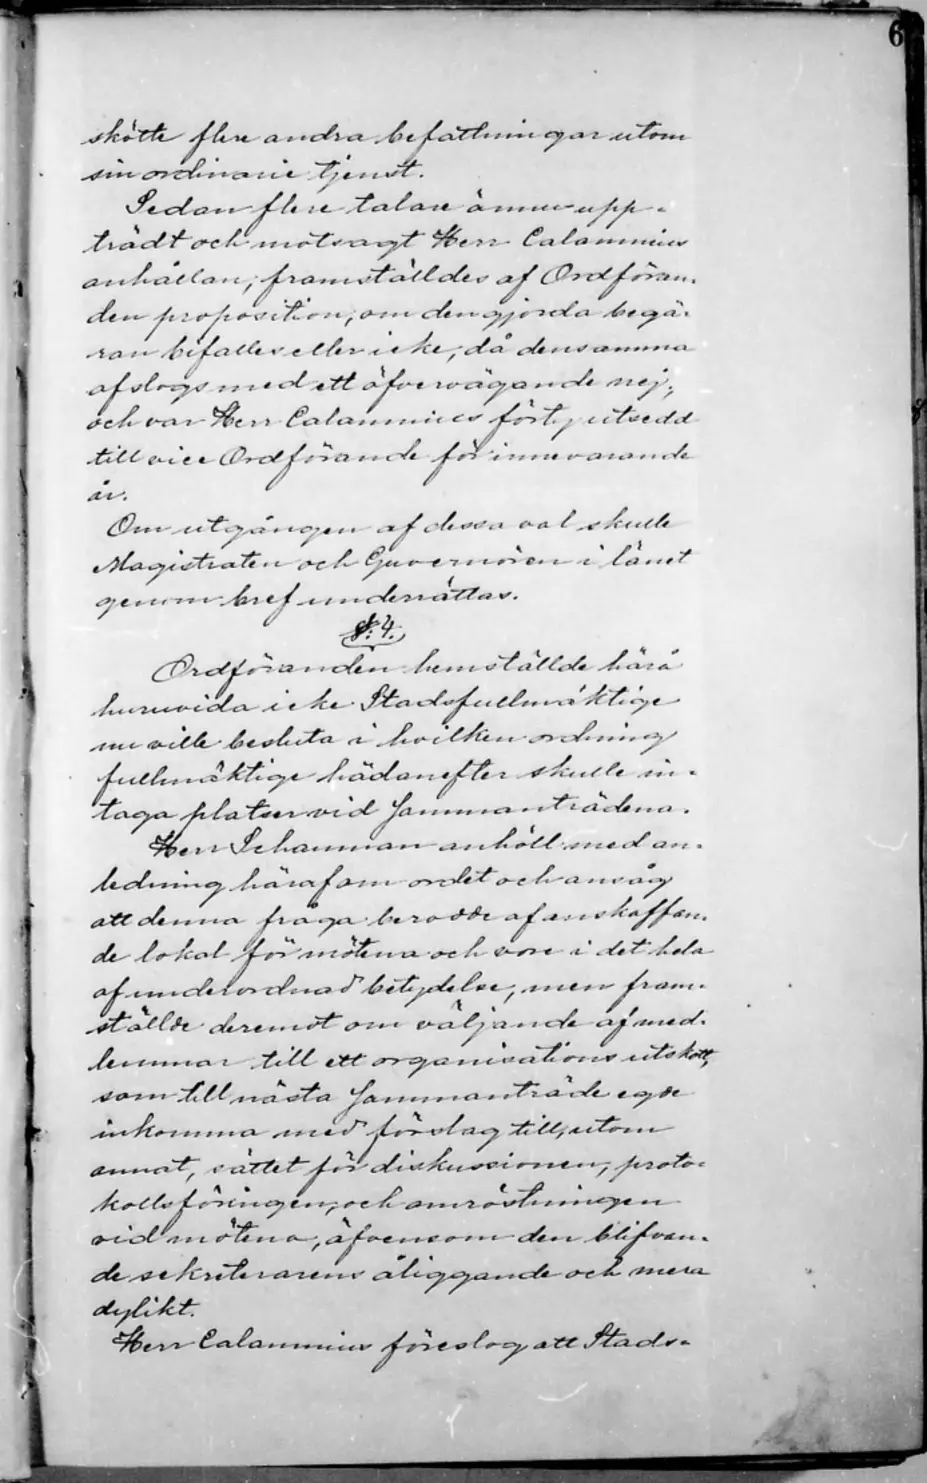 6
skötte flere andra befattningar utom
sin ordinarie tjenst.
Sedan flere talare ännu upp-
trädt och motsagt Herr Calamnius
anhållan, framstälIdes af Ordföran-
den proposition, om den gjorda begä-
ran bifalles eller icke, då densamma
afslogs med ett öfvervägande nej;
och var Herr Calamnius förty utsedd
till vice Ordförande för innevarande
år.
Om utgången af dessa val skulle
Magistraten och Guvernören i länet
genom bref underrättas.
§: 4.
Ordföranden hemställde härå
huruvida icke Stadsfullmäktige
nu ville besluta i hvilken ordning
fullmäktige hädanefter skulle in-
taga platser vid Sammanträdena.
Herr Schauman anhöll med an-
ledning häraf om ordet och ansåg
att denna fråga berodde af anskaffan-
de lokal för mötena och vore i det hela
af underordnad betydelse, men fram-
ställde deremot om väljande af med-
lemmar till ett organisations utskott,
som till nästa Sammanträde egde
inkomma med förslag till, utom
annat, sättet för diskussionen, proto-
kollsföringen, och omröstningen
vid mötena, äfvensom den blifvan-
de sekreterarens åliggande och mera
dylikt.
Herr Calamnius föreslog att Stads-